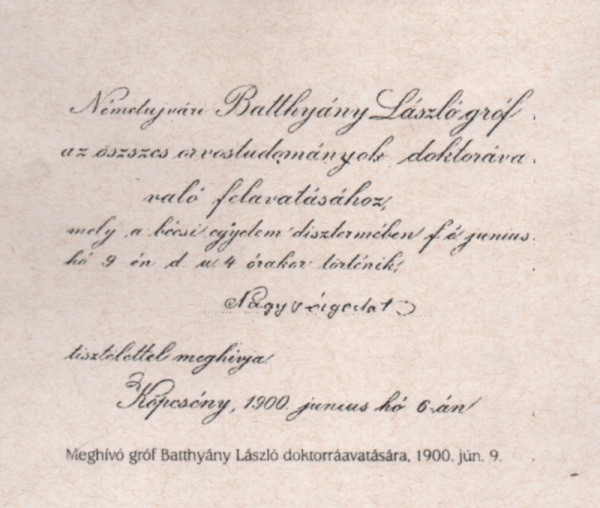 Németujvári Batthyány László gróf
az öszszes orvostudományok doktorává
való felavatásához,
mely a bécsi egyetem disztermében f. é. junius
hó 9 én d. u. 4 órakor történik,
Nagyságodat
tisztelettel meghivja
Köpcsény, 1900. junius hó 6-án
Meghívó gróf Batthyány László doktorráavatására, 1900. jún. 9.